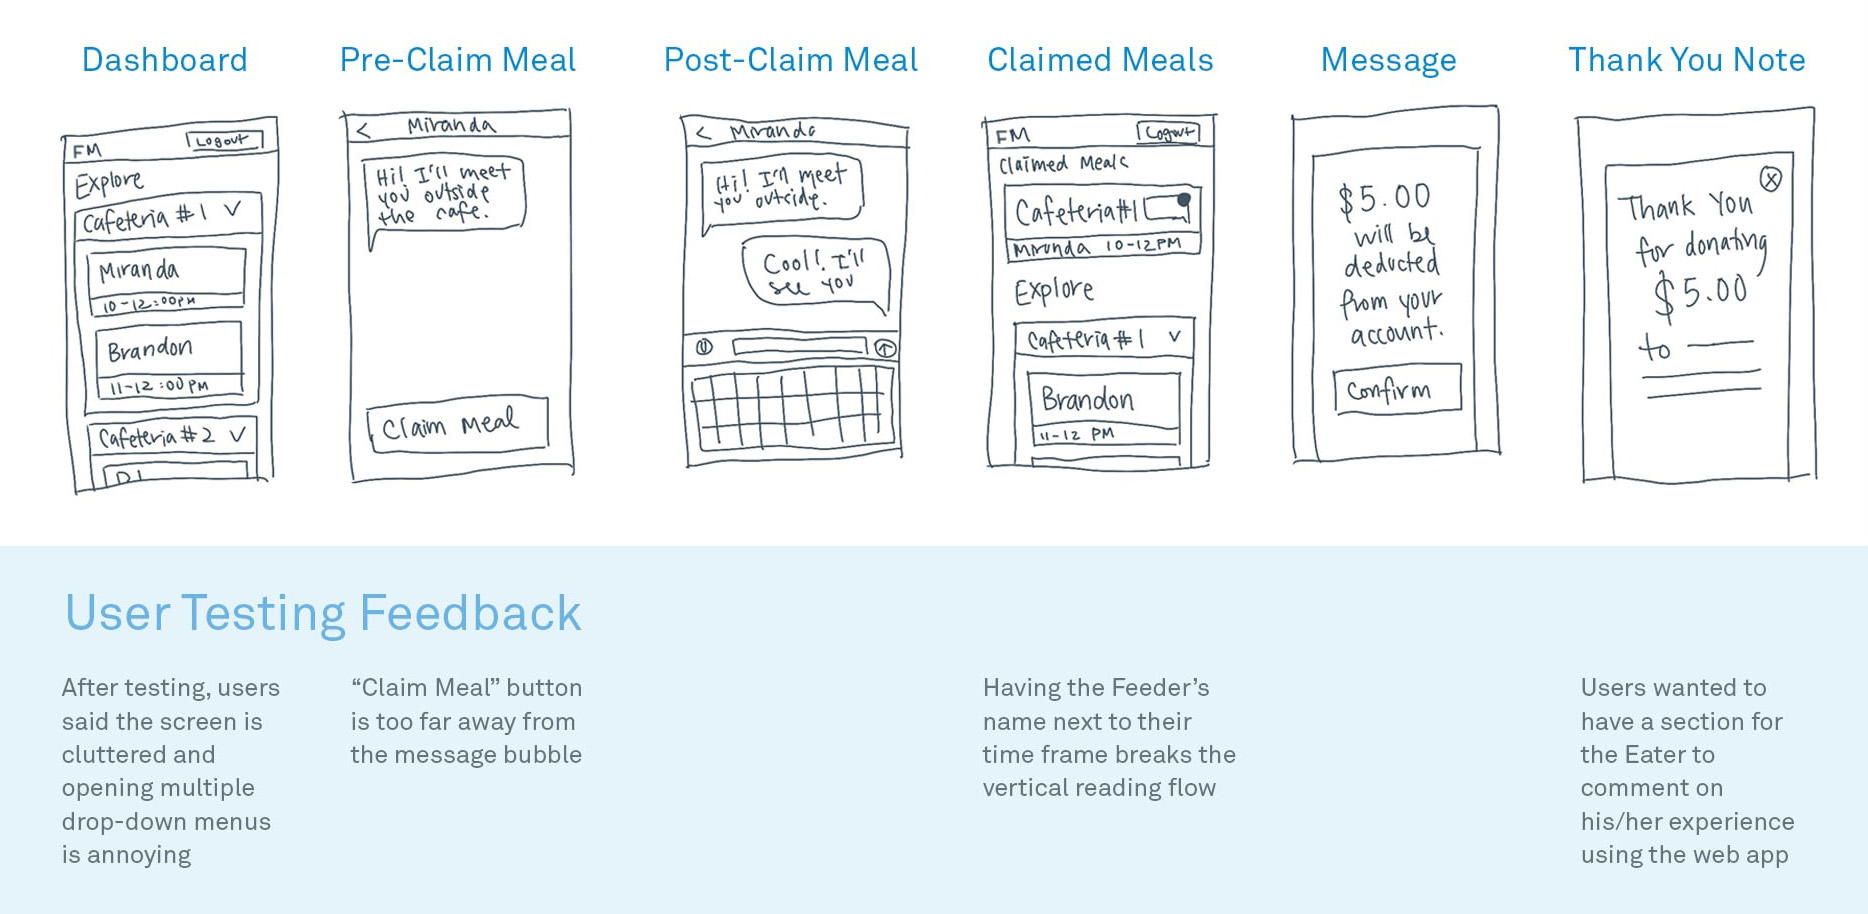 Dashboard
Pre-Claim Meal
Post-Claim Meal
Claimed Meals
Message
Thank You Note
FM
Logout
Explore
Cafeteria #1
Miranda
10-12:00PM
Brandon
11-12:00PM
Cafeteria #2
< Miranda
Hi! I'll meet
you outside
the cafe.
Claim Meal
< Miranda
Hi! I'll meet
you outside.
Cool! I'll
see you
FM
Logout
Claimed Meals
Cafeteria #1
Miranda 10-12PM
Explore
Cafeteria #1
Brandon
11-12 PM
$5.00
will be
deducted
from your
account.
Confirm
Thank You
for donating
$5.00
to
User Testing Feedback
After testing, users
said the screen is
cluttered and
opening multiple
drop-down menus
is annoying
“Claim Meal” button
is too far away from
the message bubble
Having the Feeder’s
name next to their
time frame breaks the
vertical reading flow
Users wanted to
have a section for
the Eater to
comment on
his/her experience
using the web app